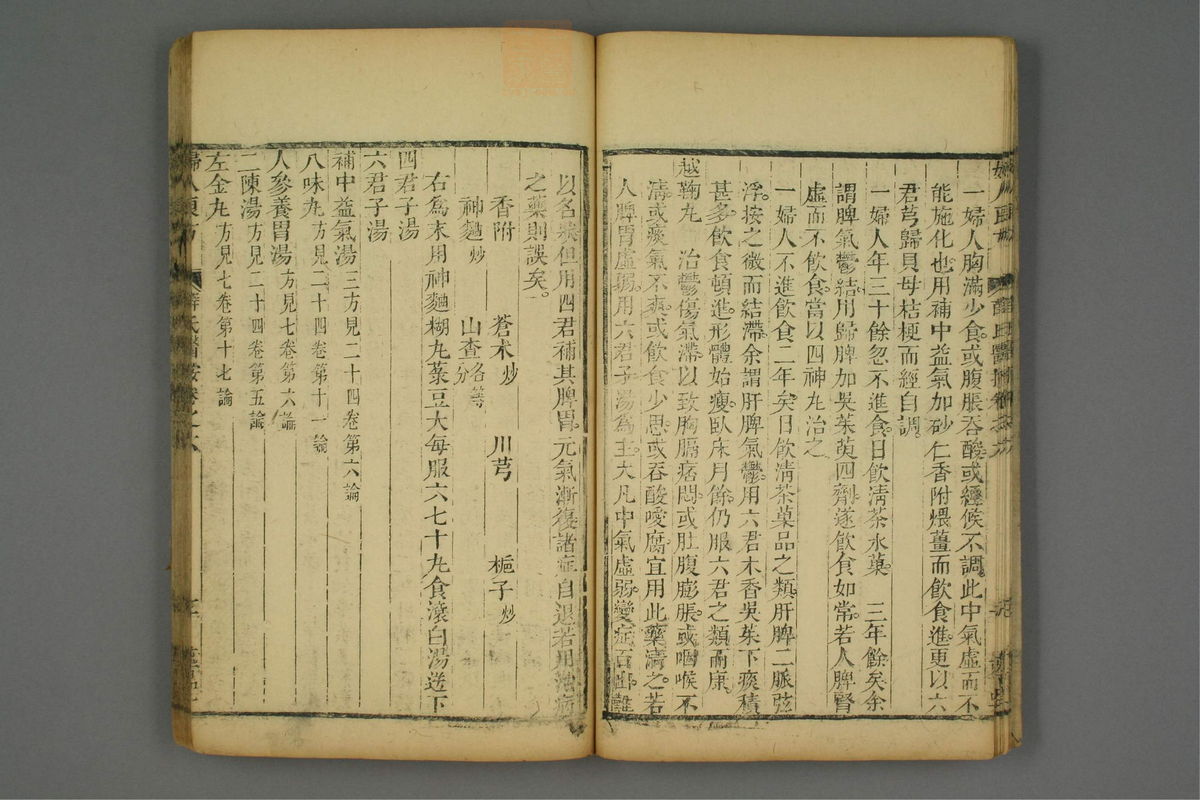 一婦人胸滿少食或腹脹吞酸或經候不調此中氣虛而不
能施化也用補中益氣加砂仁香附煨薑而飲食進更以六
君芎歸貝母桔梗而經自調
一婦人年三十餘忽不進食日飲淸茶水菓　三年餘矣余
謂脾氣鬱結用歸脾加吳茱萸四劑遂飲食如常若人脾腎
虛而不飲食當以四神丸治之
一婦人不進飲食二年矣日飲淸茶菓品之類肝脾二脈弦
浮按之微而結滯余謂肝脾氣鬱用六君木香吳茱下痰積
甚多飲食頓進形體始瘦臥床月餘仍服六君之類而康
越鞠丸　治鬱傷氣滯以致胸膈痞悶或肚腹膨脹或咽喉不
淸或痰氣不爽或飲食少思或吞酸噯腐宜用此藥淸之若
人脾胃虛弱用六君子湯爲主大凡中氣虛弱變症百出難
以名狀但用四君補其脾胃元氣漸復諸症自退若用治病
之藥則誤矣
香附　蒼朮炒　川芎　梔子炒
神麯炒　山查各等分
右爲末用神麯糊丸菉豆大每服六七十丸食滾白湯送下
四君子湯
六君子湯
補中益氣湯三方見二十四卷第六論
八味丸方見二十四卷第十一論
人參養胃湯方見七卷第六論
二陳湯方見二十四卷第五論
左金丸方見七卷第十七論
婦人良方　薛氏醫按卷之六